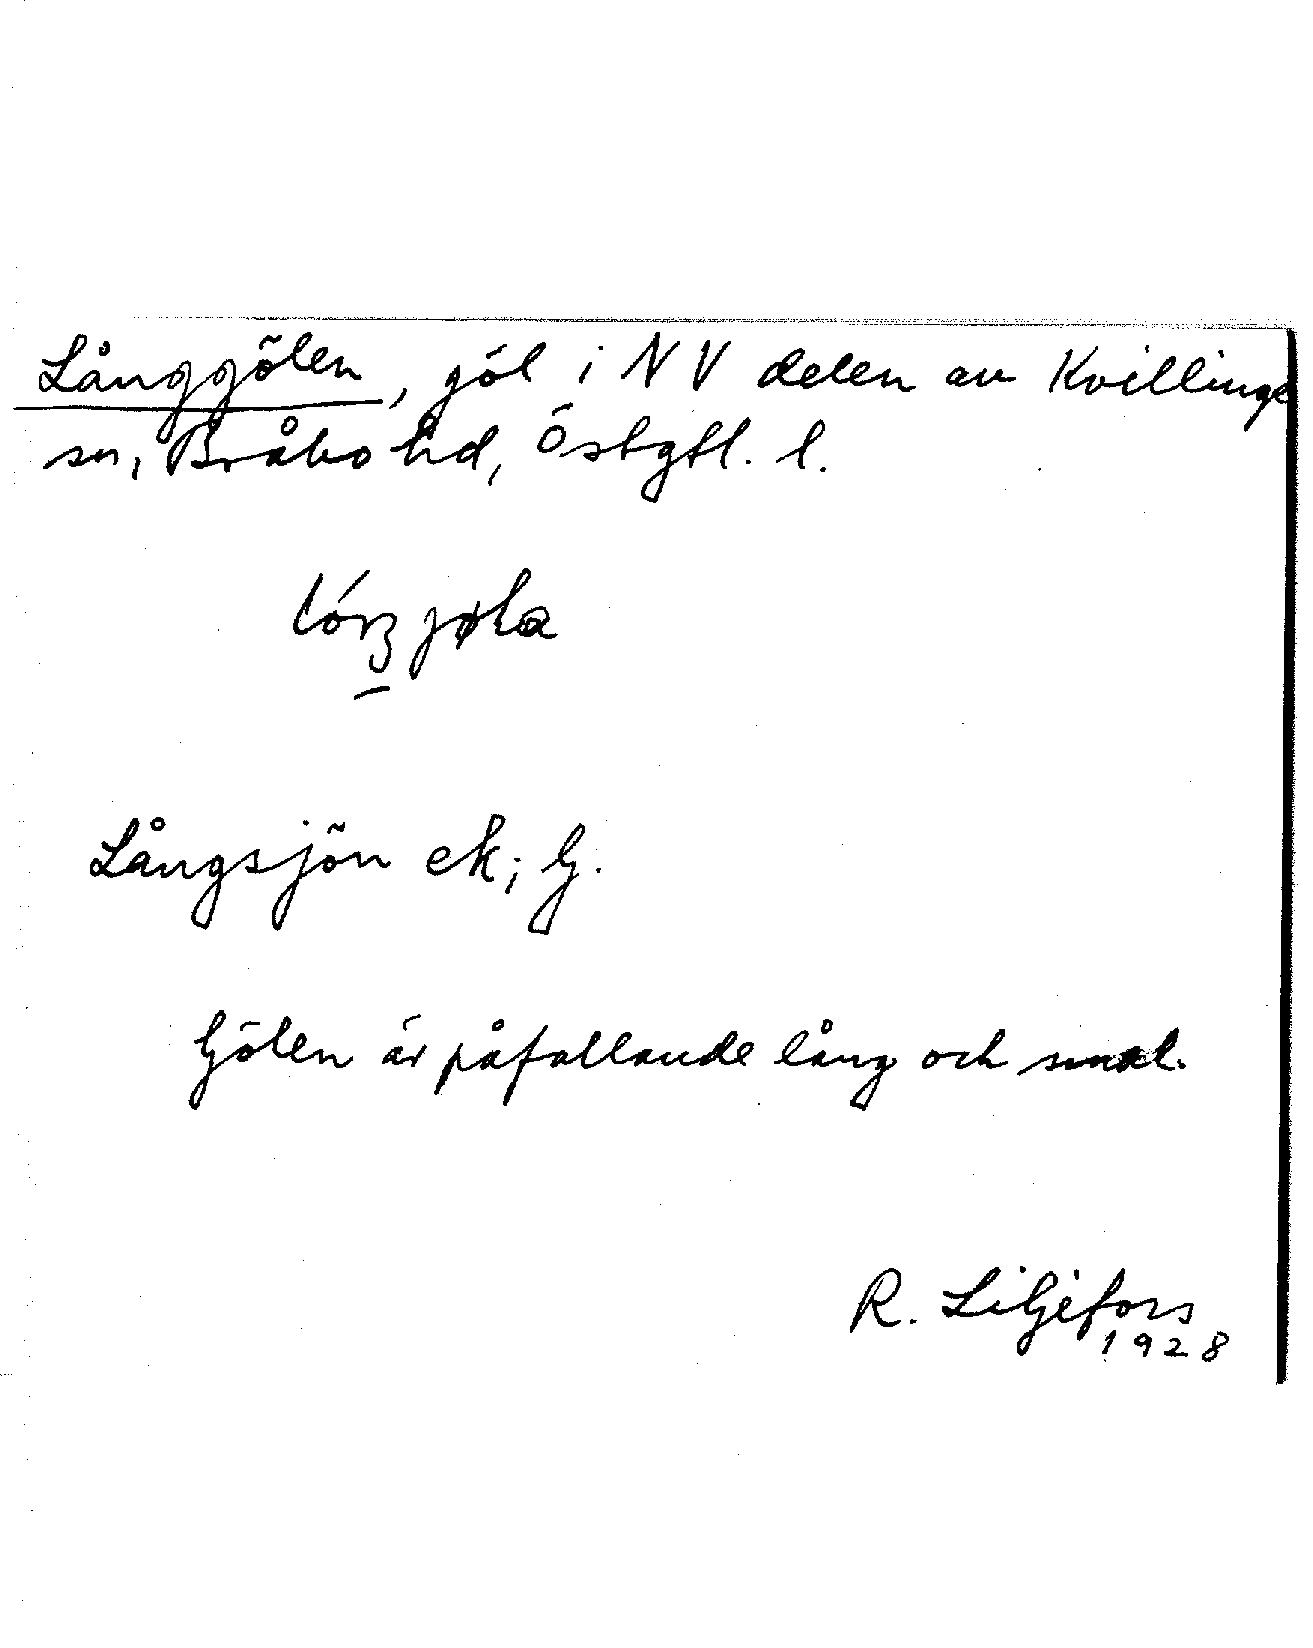 Långgölen, göl i NV delen av Kvillinge
sn, Bråbo hd, Östgtl. l.
Långsjön ek; G.
Gölen är påfallande lång och smal.
R. Liljefors
1928